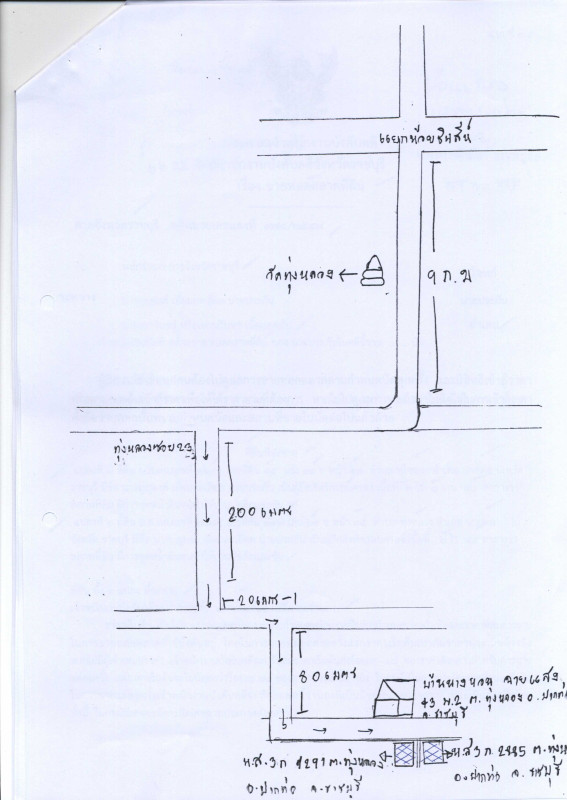 แยกห้วยชินสีห์
วัดทุ่งหลวง
9 ก.ม
ทุ่งหลวงซอย 23
200 เมตร
20 เมตร
80 เมตร
บ้าน
43 ม.2 ต. ทุ่งหลวง อ. ปากท่อ
จ.ราชบุรี
น.ส.3 ก 4291 ต.ทุ่งหลวง
อ.ปากท่อ จ.ราชบุรี
น.ส3 ก. 2885 ต. ทุ่ง
อ.ปากท่อ จ. ราชบุรี